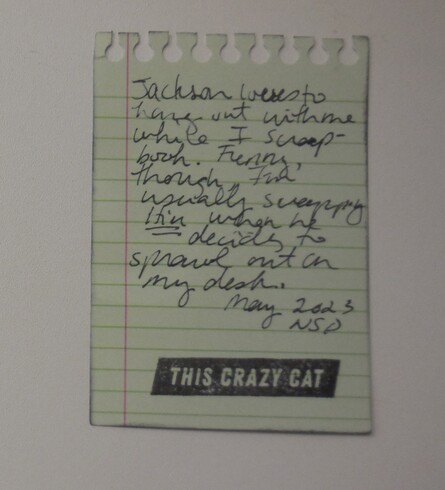 Jackson loves to
hang out with me
while I scrap-
book. Funny,
though, I'm
usually scrapping
when he
decides to
sprawl out on
my desk.
May 2023
NSD
THIS CRAZY CAT